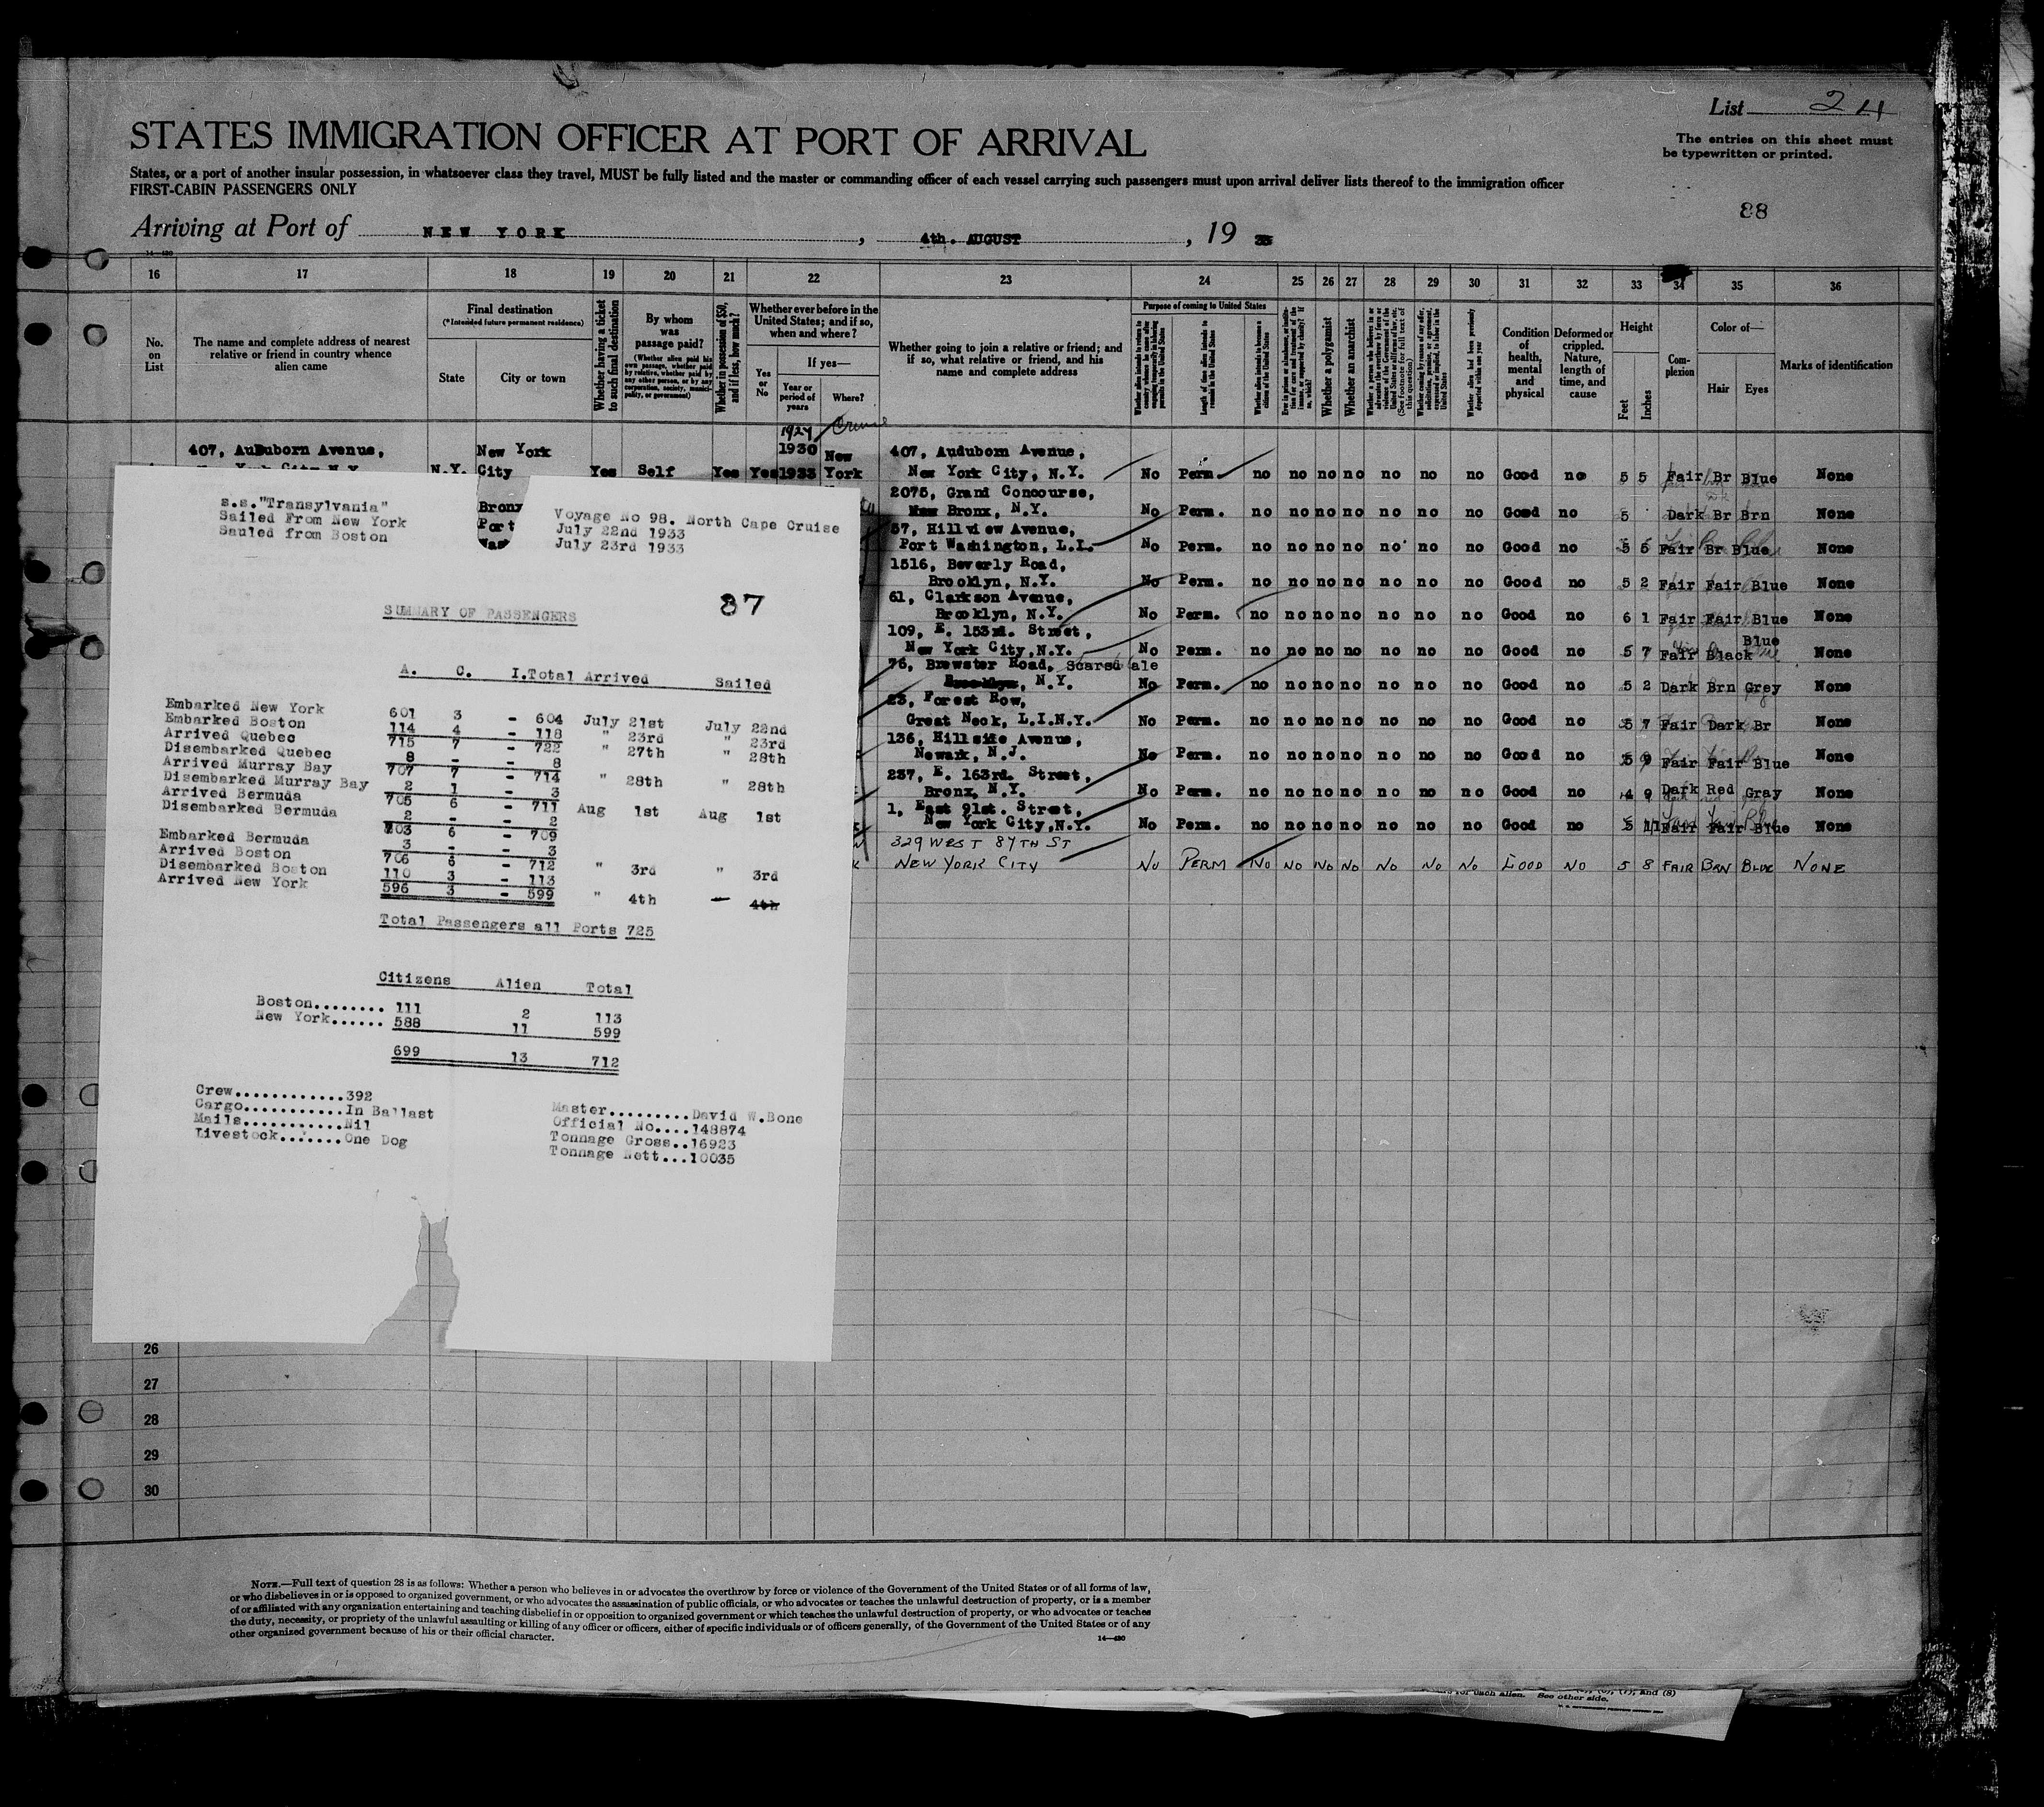 List 24
STATES IMMIGRATION OFFICER AT PORT OF ARRIVAL
The entries on this sheet must
be typewritten or printed.
States, or a port of another insular possession, in whatsoever class they travel, MUST be fully listed and the master or commanding officer of each vessel carrying such passengers must upon arrival deliver lists thereof to the immigration officer
FIRST-CABIN PASSENGERS ONLY
88
Arriving at Port of NEW YORK, 4th. AUGUST, 19 33
14—480
16 17 18 19 20 21 22 23 24 25 26 27 28 29 30 31 32 33 34 35 36
No. on List
The name and complete address of nearest relative or friend in country whence alien came
Final destination
(*Intended future permanent residence)
State
City or town
Whether having a ticket to such final destination
By whom was passage paid?
(Whether alien paid his own passage, whether paid by relative, whether paid by any other person, or by any corporation, society, municipality, or government)
Whether in possession of $50, and if less, how much?
Whether ever before in the United States; and if so, when and where?
Yes or No
If yes—
Year or period of years
Where?
Whether going to join a relative or friend; and if so, what relative or friend, and his name and complete address
Purpose of coming to United States
Length of time alien intends to remain in the United States
Whether alien intends to become a citizen of the United States
Whether a polygamist
Whether an anarchist
Condition of health, mental and physical
Deformed or crippled. Nature, length of time, and cause
Height
Feet
Inches
Complexion
Color of—
Hair
Eyes
Marks of identification
1924 Cruise
407, AuDuborn Avenue, New York 1930 New 407, Auduborn Avenue,
N.Y. City Yes Self Yes Yes 1933 York New York City, N.Y. No Perm. no no no no no no no Good no 5 5 Fair Br Blue None
2075, Grand Concourse,
Bronx, N.Y. No Perm. no no no no no no no Good no 5 Dark Br Brn None
57, Hillview Avenue,
Port Washington, L.I. No Perm. no no no no no no no Good no 5 5 Fair Br Blue None
1516, Beverly Road,
Brooklyn, N.Y. No Perm. no no no no no no no Good no 5 2 Fair Fair Blue None
61, Clarkson Avenue,
Brooklyn, N.Y. No Perm. no no no no no no no Good no 6 1 Fair Fair Blue None
109, E. 153rd. Street,
New York City, N.Y. No Perm. no no no no no no no Good no 5 7 Fair Black Blue None
76, Brewster Road, Scarsdale
Brooklyn, N.Y. No Perm. no no no no no no no Good no 5 2 Dark Brn Grey None
23, Forest Row,
Great Neck, L.I.N.Y. No Perm. no no no no no no no Good no 5 7 Fair Dark Br None
136, Hillside Avenue,
Newark, N.J. No Perm. no no no no no no no Good no 5 9 Fair Fair Blue None
237, E. 163rd. Street,
Bronx, N.Y. No Perm. no no no no no no no Good no 4 9 Dark Red Gray None
1, East 91st. Street,
New York City, N.Y. No Perm. no no no no no no no Good no 5 11 Fair Fair Blue None
329 WEST 87TH ST
NEW YORK CITY No PERM No No No No No No No GOOD No 5 8 FAIR BRN BLUE NONE
Bronx
Port
s.s."Transylvania" Voyage No 98. North Cape Cruise
Sailed From New York July 22nd 1933
Sauled from Boston July 23rd 1933
87
SUMMARY OF PASSENGERS
A. C. I. Total Arrived Sailed
Embarked New York 601 3 - 604 July 21st July 22nd
Embarked Boston 114 4 - 118 " 23rd " 23rd
Arrived Quebec 715 7 - 722 " 27th " 28th
Disembarked Quebec 8 - - 8
Arrived Murray Bay 707 7 - 714 " 28th " 28th
Disembarked Murray Bay 2 1 - 3
Arrived Bermuda 705 6 - 711 Aug 1st Aug 1st
Disembarked Bermuda 2 - - 2
703 6 - 709
Embarked Bermuda 3 - - 3
Arrived Boston 706 6 - 712 " 3rd " 3rd
Disembarked Boston 110 3 - 113
Arrived New York 596 3 - 599 " 4th — 4th
Total Passengers all Ports 725
Citizens Alien Total
Boston........ 111 2 113
New York...... 588 11 599
699 13 712
Crew............392
Cargo...........In Ballast
Mails...........Nil
Livestock.......One Dog
Master.........David W.Bone
Official No....148874
Tonnage Gross..16923
Tonnage Nett...10035
26
27
28
29
30
NOTE.—Full text of question 28 is as follows: Whether a person who believes in or advocates the overthrow by force or violence of the Government of the United States or of all forms of law,
or who disbelieves in or is opposed to organized government, or who advocates the assassination of public officials, or who advocates or teaches the unlawful destruction of property, or is a member
of or affiliated with any organization entertaining and teaching disbelief in or opposition to organized government or which teaches the unlawful destruction of property, or who advocates or teaches
the duty, necessity, or propriety of the unlawful assaulting or killing of any officer or officers, either of specific individuals or of officers generally, of the Government of the United States or of any
other organized government because of his or their official character.
14—480
for each alien. See other side.